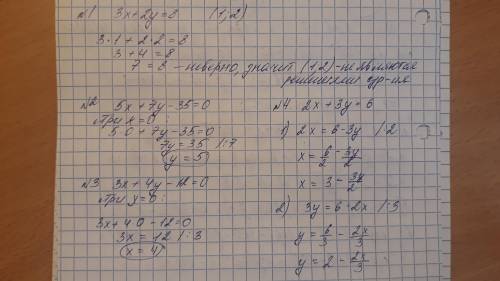 №1 3x+2y=8 (1;2)
3·1+2·2=8
3+4=8
7=8 – неверно, значит (1;2) – не является
решением ур-ия.
№2 5x+7y-35=0
при x=0:
5·0+7y-35=0
7y=35 |:7
y=5
№3 3x+4y-12=0
при y=0:
3x+4·0-12=0
3x=12 |:3
x=4
№4 2x+3y=6
1) 2x=6-3y |:2
x=6/2-3y/2
x=3-3y/2
2) 3y=6-2x |:3
y=6/3-2x/3
y=2-2x/3